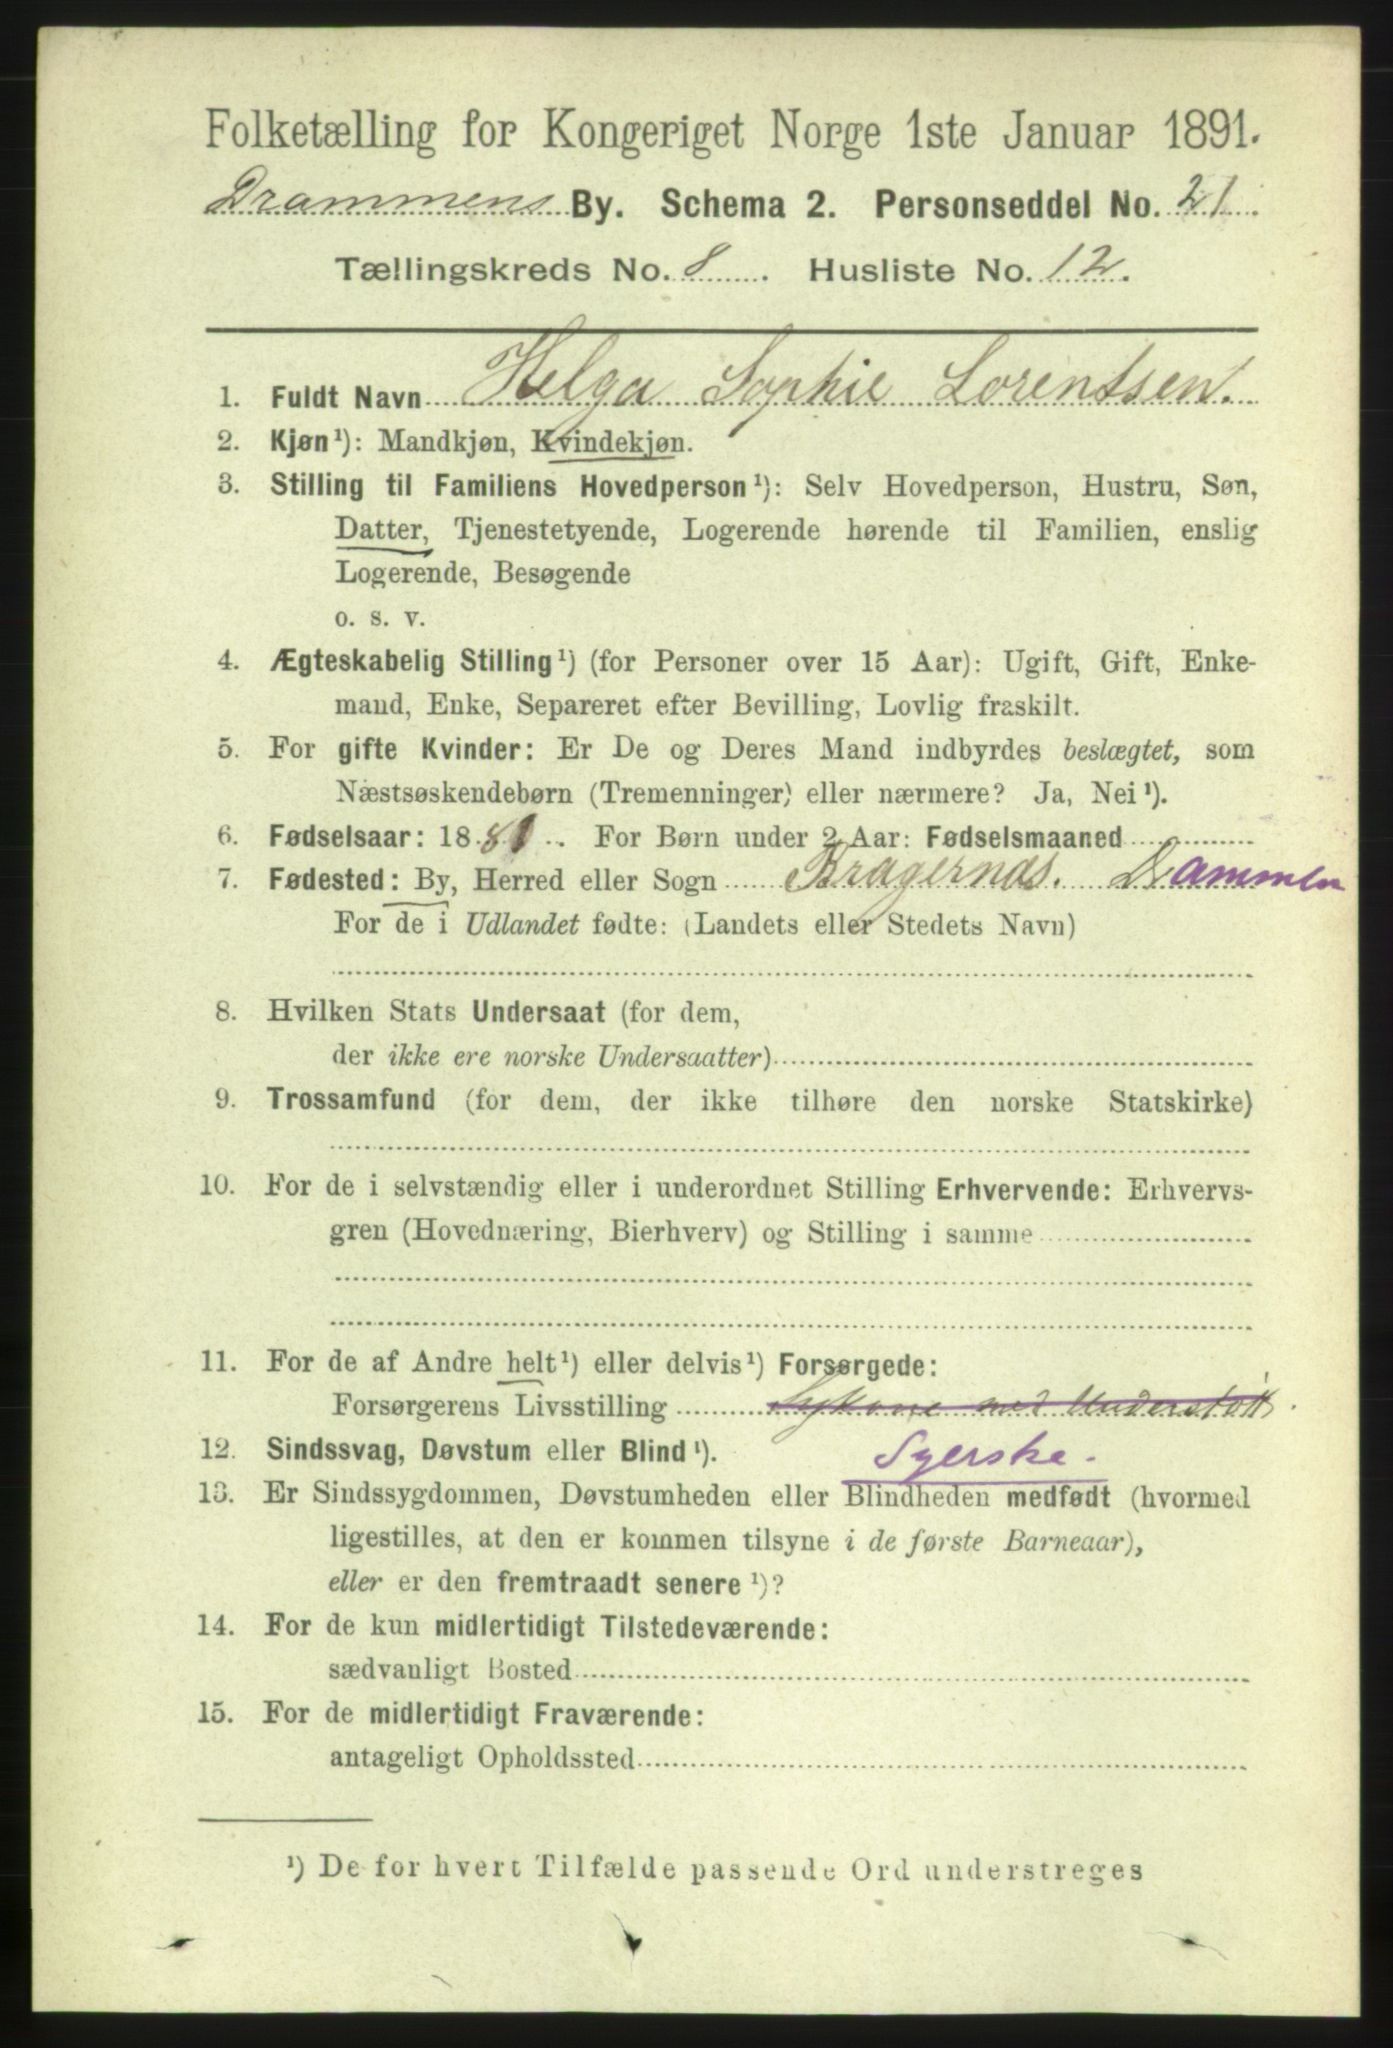 Folketælling for Kongeriget Norge 1ste Januar 1891.
Drammens By. Schema 2. Personseddel No. 21.
Tællingskreds No. 8. Husliste No. 12.
1. Fuldt Navn Helga Sophie Lorentsen.
2. Kjøn¹): Mandkjøn, Kvindekjøn.
3. Stilling til Familiens Hovedperson¹): Selv Hovedperson, Hustru, Søn,
Datter, Tjenestetyende, Logerende hørende til Familien, enslig
Logerende, Besøgende
o. s. v.
4. Ægteskabelig Stilling¹) (for Personer over 15 Aar): Ugift, Gift, Enke-
mand, Enke, Separeret efter Bevilling, Lovlig fraskilt.
5. For gifte Kvinder: Er De og Deres Mand indbyrdes beslægtet, som
Næstsøskendebørn (Tremenninger) eller nærmere? Ja, Nei¹).
6. Fødselsaar: 1881. For Børn under 2 Aar: Fødselsmaaned
7. Fødested: By, Herred eller Sogn Bragernæs. Drammen
For de i Udlandet fødte: (Landets eller Stedets Navn)
8. Hvilken Stats Undersaat (for dem,
der ikke ere norske Undersaatter)
9. Trossamfund (for dem, der ikke tilhøre den norske Statskirke)
10. For de i selvstændig eller i underordnet Stilling Erhvervende: Erhvervs-
gren (Hovednæring, Bierhverv) og Stilling i samme
11. For de af Andre helt¹) eller delvis¹) Forsørgede:
Forsørgerens Livsstilling Sykone med Understøtt.
12. Sindssvag, Døvstum eller Blind¹). Syerske.
13. Er Sindssygdommen, Døvstumheden eller Blindheden medfødt (hvormed
ligestilles, at den er kommen tilsyne i de første Barneaar),
eller er den fremtraadt senere¹)?
14. For de kun midlertidigt Tilstedeværende:
sædvanligt Bosted
15. For de midlertidigt Fraværende:
antageligt Opholdssted
¹) De for hvert Tilfælde passende Ord understreges